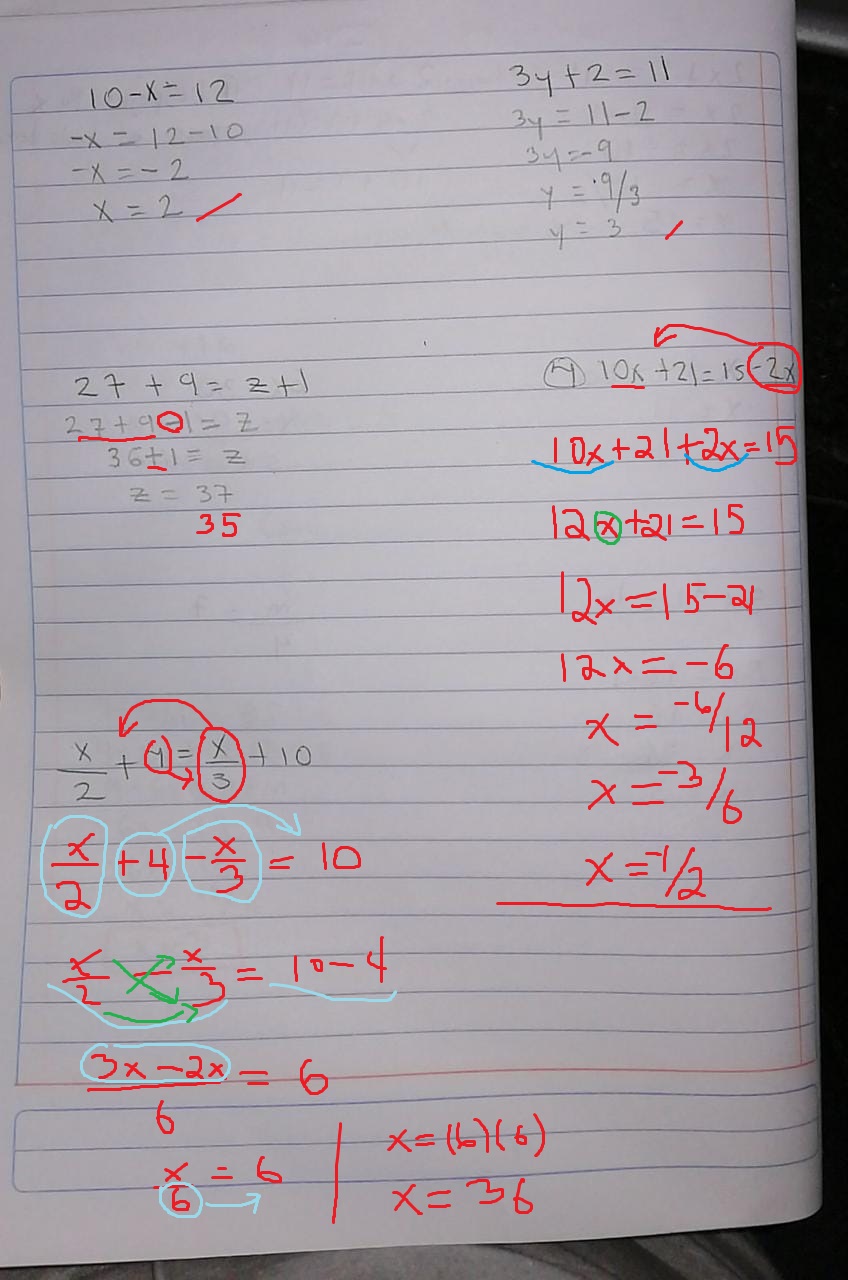 10-x=12
-x = 12-10
-x = -2
x = 2
3y+2=11
3y = 11-2
3y=-9
y = 9/3
y = 3
27 + 9 = z+1
27+9-1 = z
36+1 = z
z = 37
35
10x +21=15-2x
10x+21+2x=15
12x+21=15
12x=15-21
12x=-6
x = -6/12
x = -3/6
x = -1/2
x/2 + 4 = x/3 + 10
x/2 +4 -x/3 = 10
x/2 - x/3 = 10-4
3x-2x/6 = 6
x/6 = 6
x=(6)(6)
x= 36